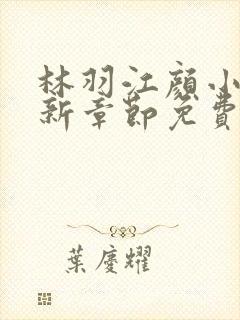 林羽江顏小
新章節免費
葉慶耀